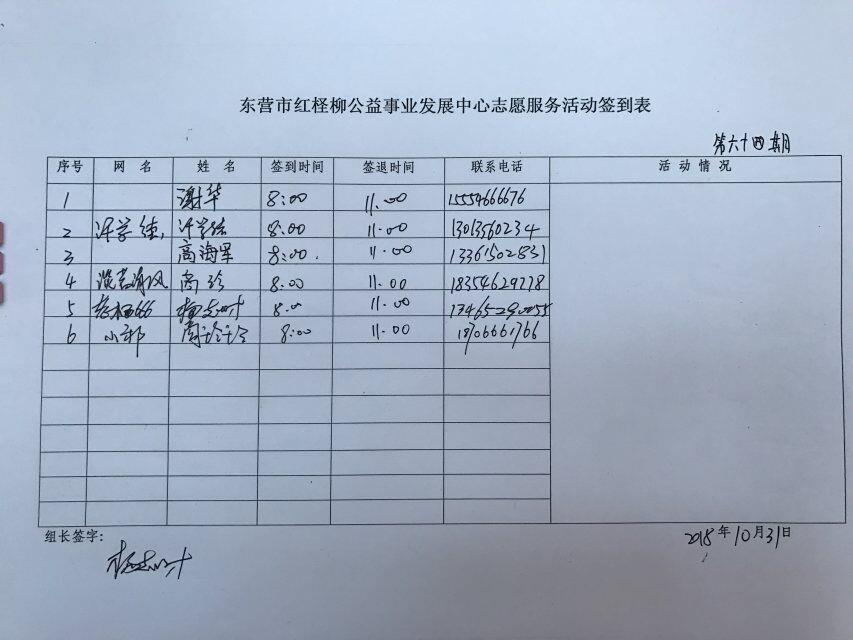 东营市红柽柳公益事业发展中心志愿服务活动签到表
第六十四期
序号 网名 姓名 签到时间 签退时间 联系电话 活动情况
1 谢华 8:00 11.00 15554666676
2 8:00 11.00 13013560234
3 高海军 8:00. 11.00 13361502831
4 高珍 8:00 11.00 18354629778
5 8.0 11.00 17465290055
6 小郭 8:00 11.00 13706661766
组长签字:
2018年10月31日